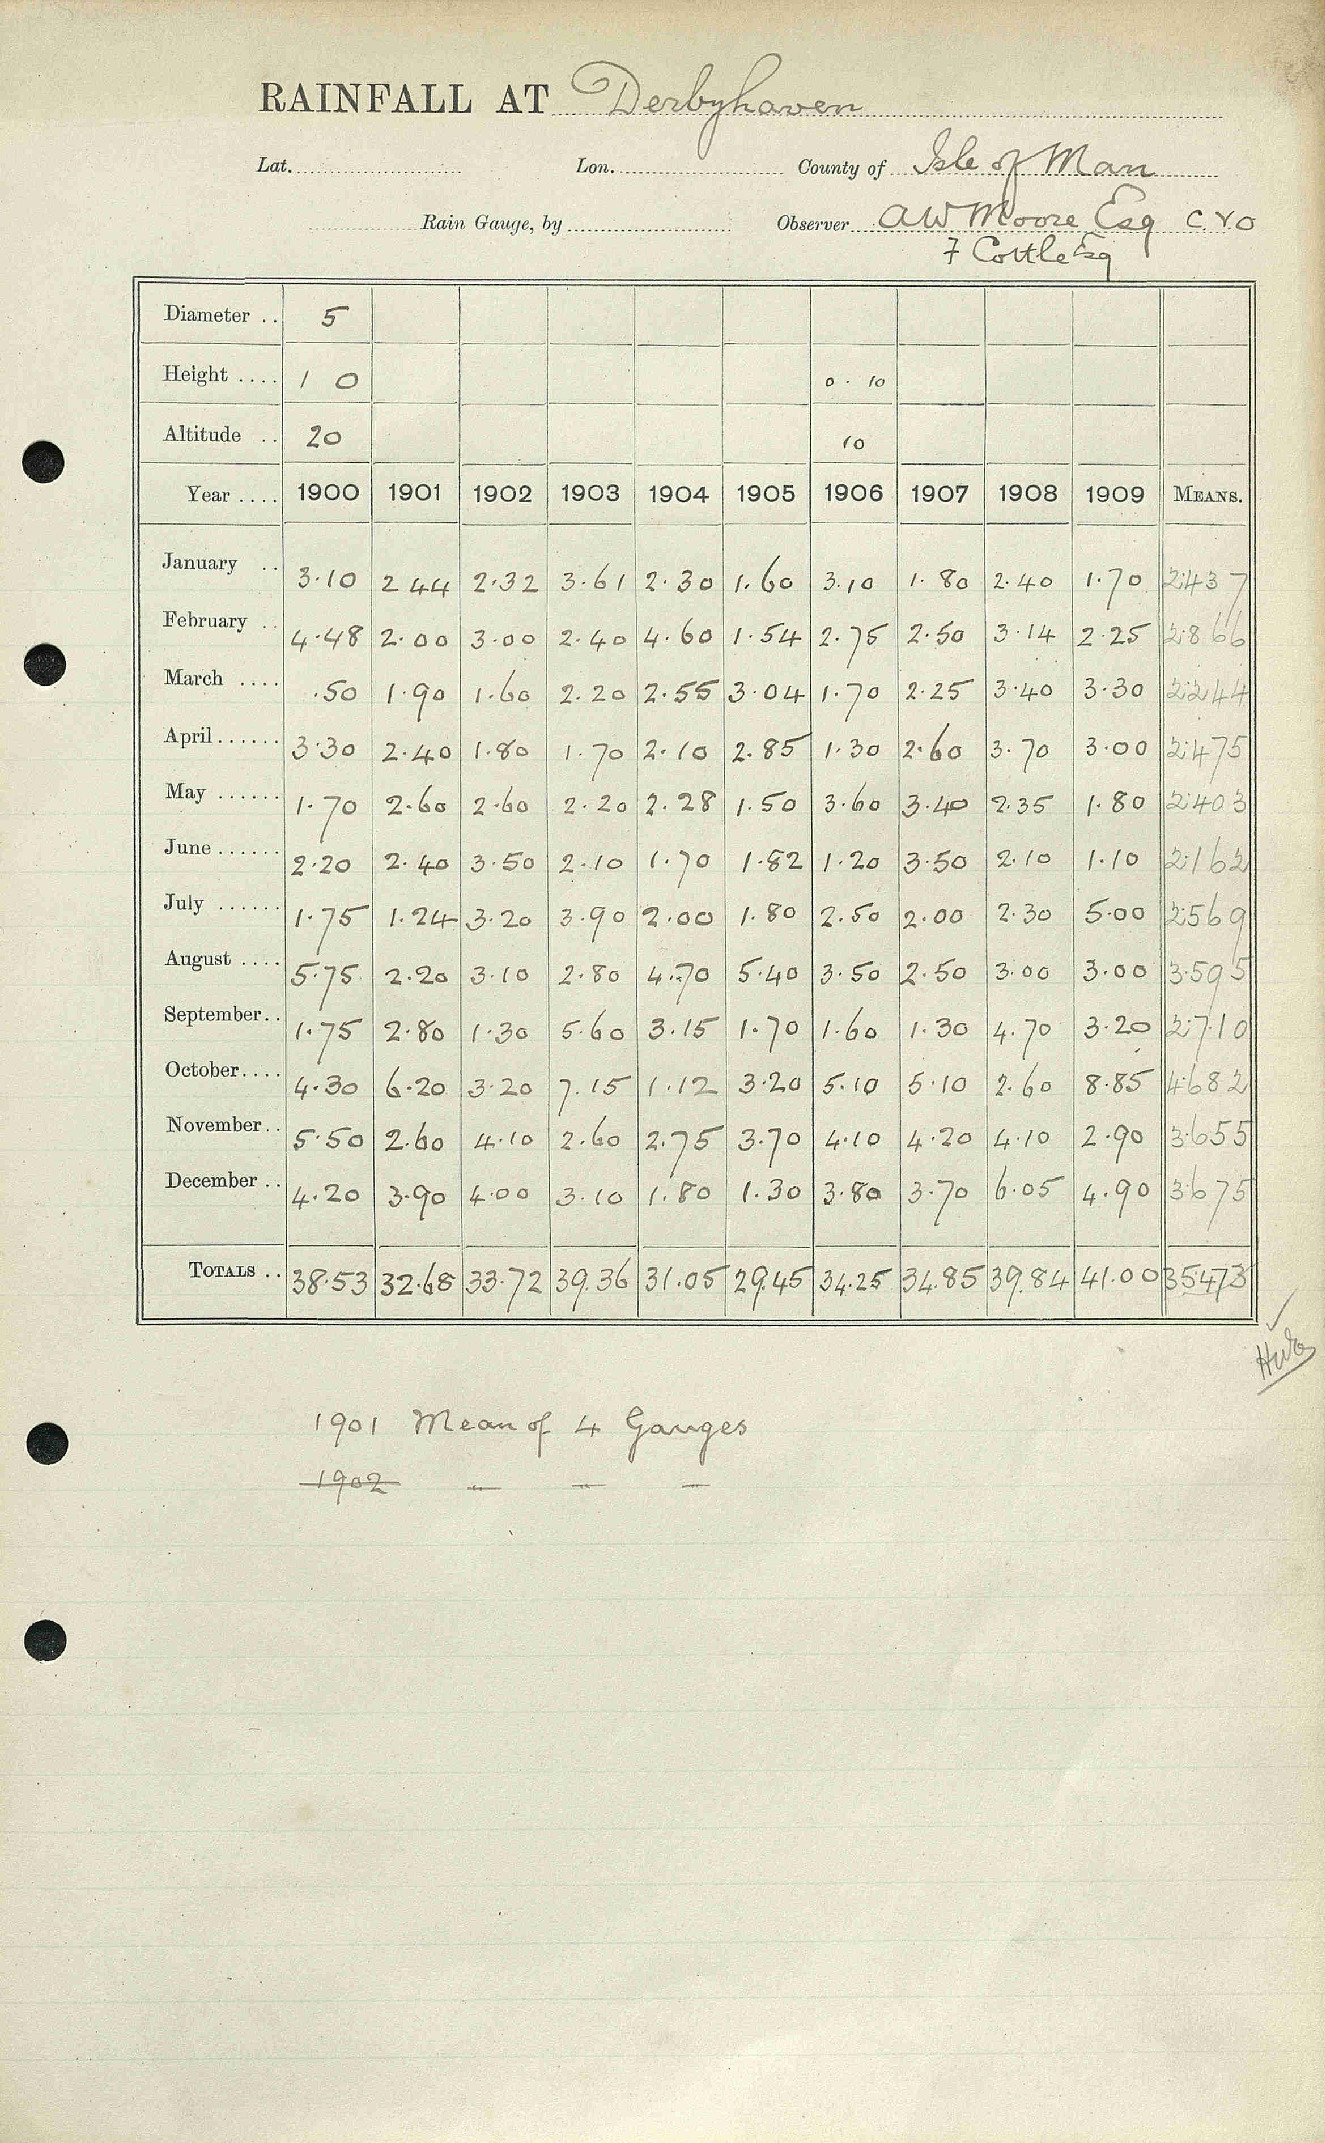 RAINFALL AT Derbyhaven
Lat. Lon. County of Isle of Man
Rain Gauge, by Observer AW Moore Esq C.V.O
F Cottle Esq
Diameter .. 5
Height .... 1 0 0 . 10
Altitude .. 20 10
Year .... 1900 1901 1902 1903 1904 1905 1906 1907 1908 1909 MEANS.
January .. 3.10 2 44 2.32 3.61 2.30 1.60 3.10 1.80 2.40 1.70 2.437
February .. 4.48 2.00 3.00 2.40 4.60 1.54 2.75 2.50 3.14 2.25 2.866
March .... .50 1.90 1.60 2.20 2.55 3.04 1.70 2.25 3.40 3.30 2.244
April ...... 3.30 2.40 1.80 1.70 2.10 2.85 1.30 2.60 3.70 3.00 2.475
May ...... 1.70 2.60 2.60 2.20 2.28 1.50 3.60 3.40 2.35 1.80 2.403
June ...... 2.20 2.40 3.50 2.10 1.70 1.82 1.20 3.50 2.10 1.10 2.162
July ...... 1.75 1.24 3.20 3.90 2.00 1.80 2.50 2.00 2.30 5.00 2.569
August .... 5.75 2.20 3.10 2.80 4.70 5.40 3.50 2.50 3.00 3.00 3.595
September .. 1.75 2.80 1.30 5.60 3.15 1.70 1.60 1.30 4.70 3.20 2.710
October .... 4.30 6.20 3.20 7.15 1.12 3.20 5.10 5.10 2.60 8.85 4.682
November .. 5.50 2.60 4.10 2.60 2.75 3.70 4.10 4.20 4.10 2.90 3.655
December .. 4.20 3.90 4.00 3.10 1.80 1.30 3.80 3.70 6.05 4.90 3.675
TOTALS .. 38.53 32.68 33.72 39.36 31.05 29.45 34.25 34.85 39.84 41.00 35.473
1901 Mean of 4 Gauges
1902 – – –